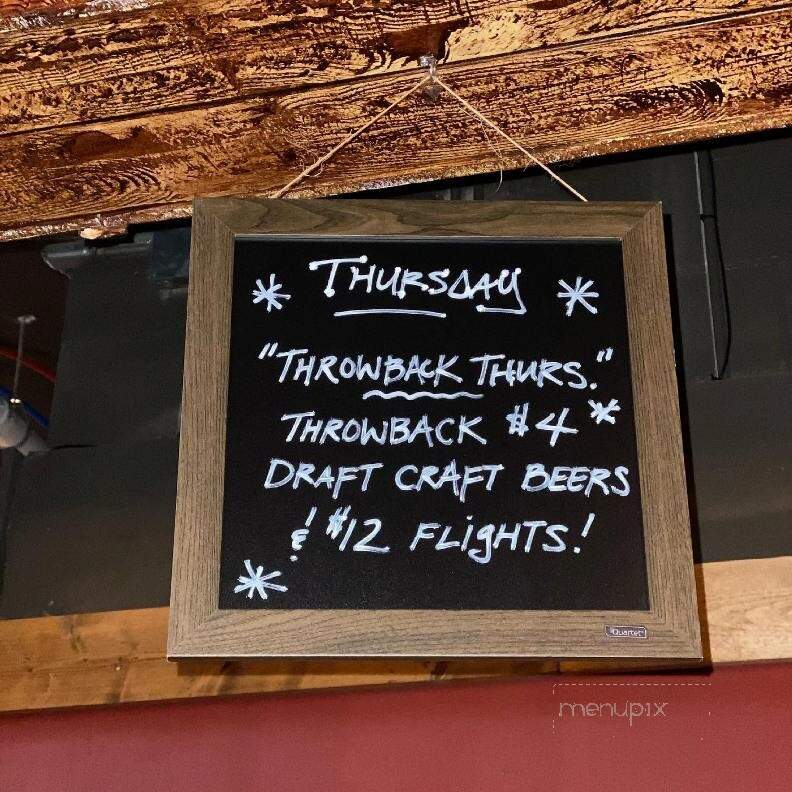 THURSDAY
"THROWBACK THURS."
THROWBACK $4
DRAFT CRAFT BEERS
& $12 FLIGHTS!
Quartet
menupix